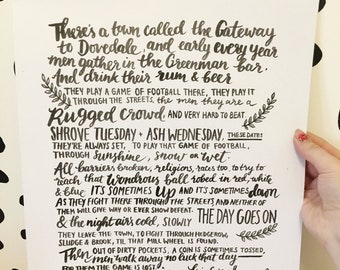 There's a town called the Gateway
to Dovedale, and early every year
men gather in the Greenman bar.
And drink their rum & beer
THEY PLAY A GAME OF FOOTBALL THERE, THEY PLAY IT
THROUGH THE STREETS, the men they are a
Rugged crowd, AND VERY HARD TO BEAT.
SHROVE TUESDAY + ASH WEDNESDAY, THESE DATES
THEY'RE ALWAYS SET, TO PLAY THAT GAME OF FOOTBALL,
THROUGH Sunshine, snow or wet.
All barriers broken, religions, races too, to try to
reach that wondrous ball robed in red, white
& blue. IT'S SOMETIMES UP AND IT'S SOMETIMES down
AS THEY FIGHT THERE THROUGHT THE STREETS AND NEITHER OF
THEM WILL GIVE WAY OR EVER SHOW DEFEAT.
& the night airs cold, SLOWLY THE DAY GOES ON
THEY LEAVE THE TOWN, TO FIGHT THROUGH HEDGEROW,
SLUDGE & BROOK, TIL THAT MILL WHEEL IS FOUND.
Then OUT OF DIRTY POCKETS, A COIN IS SOMETIMES TOSSED,
men walk away no luck that day
FOR THEM THE GAME IS LOST.